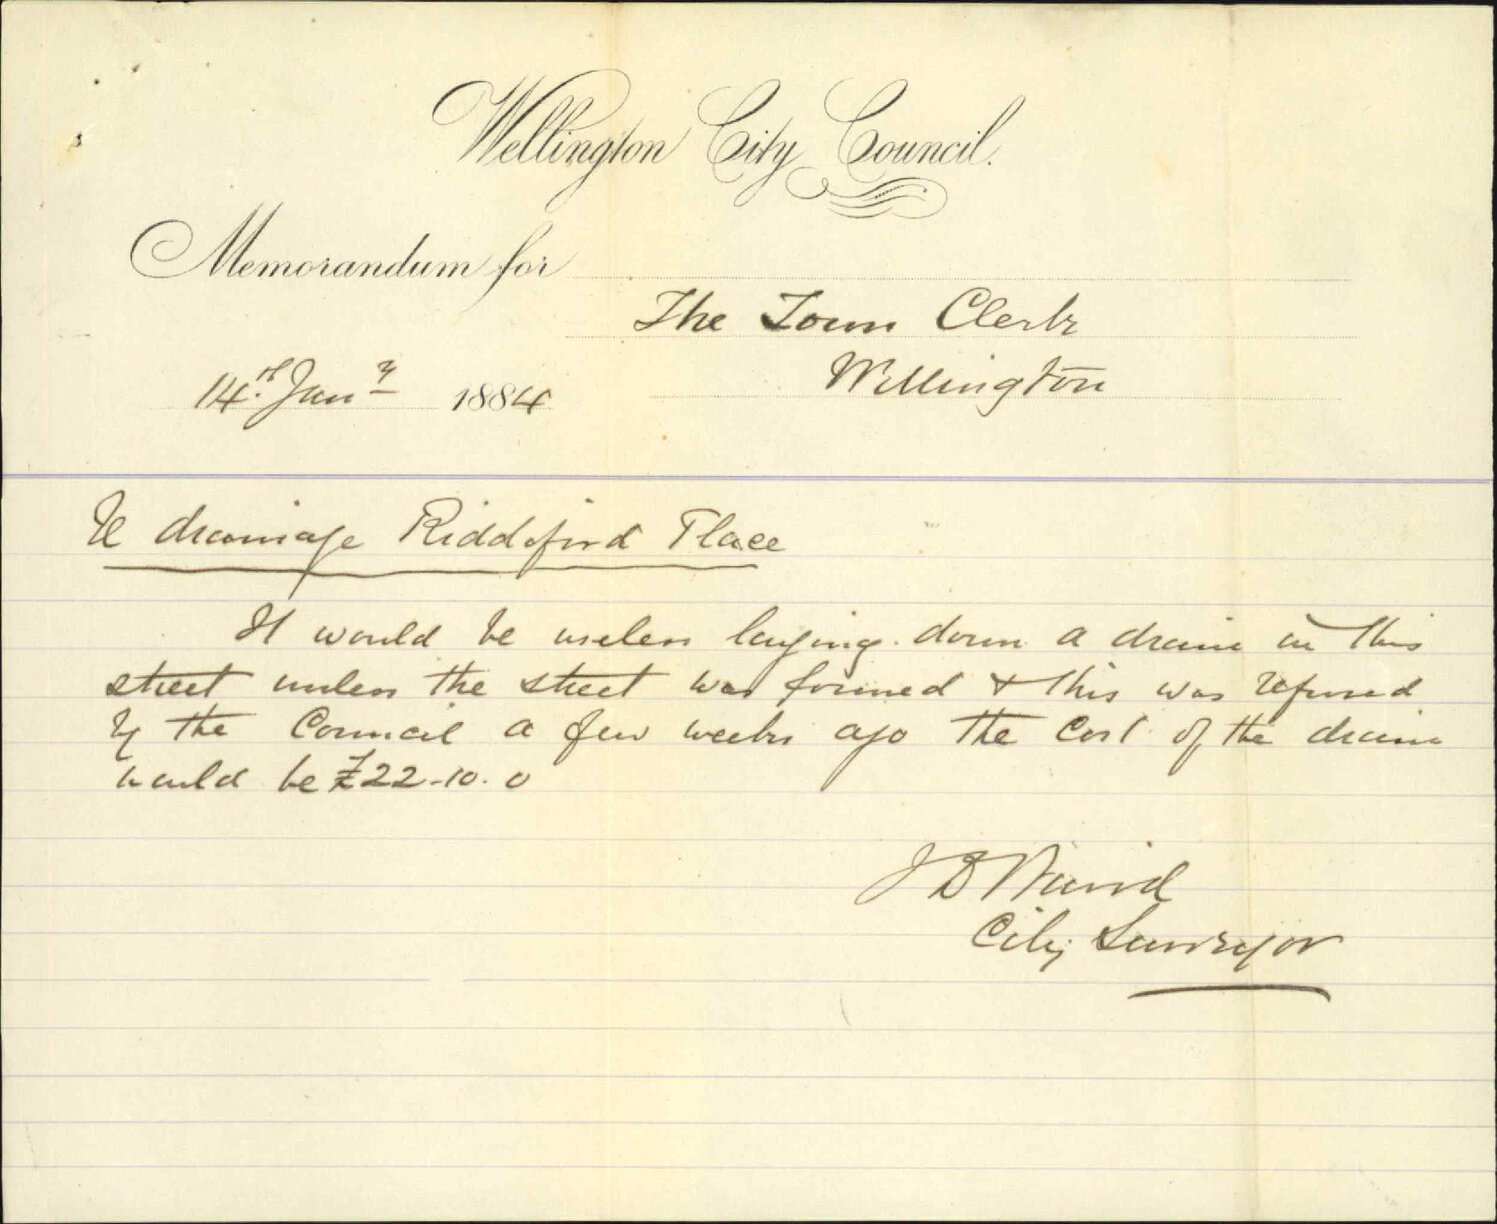 Wellington City Council.
Memorandum for
The Town Clerk
Wellington
14th Jany 1884
Re drainage Riddiford Place
It would be useless laying down a drain in this
street unless the street was formed & this was refused
by the Council a few weeks ago the cost of the drain
would be £22-10-0
J D Baird
City Surveyor